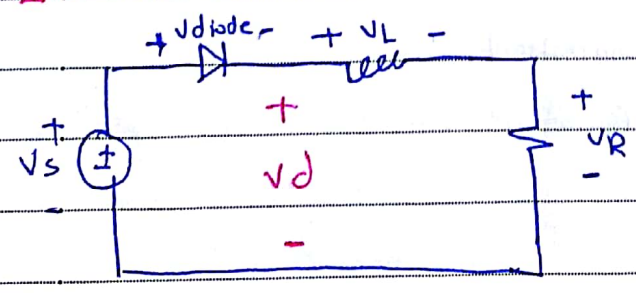 + Vdiode - + VL -
+ + +
Vs ± Vd VR
- - -